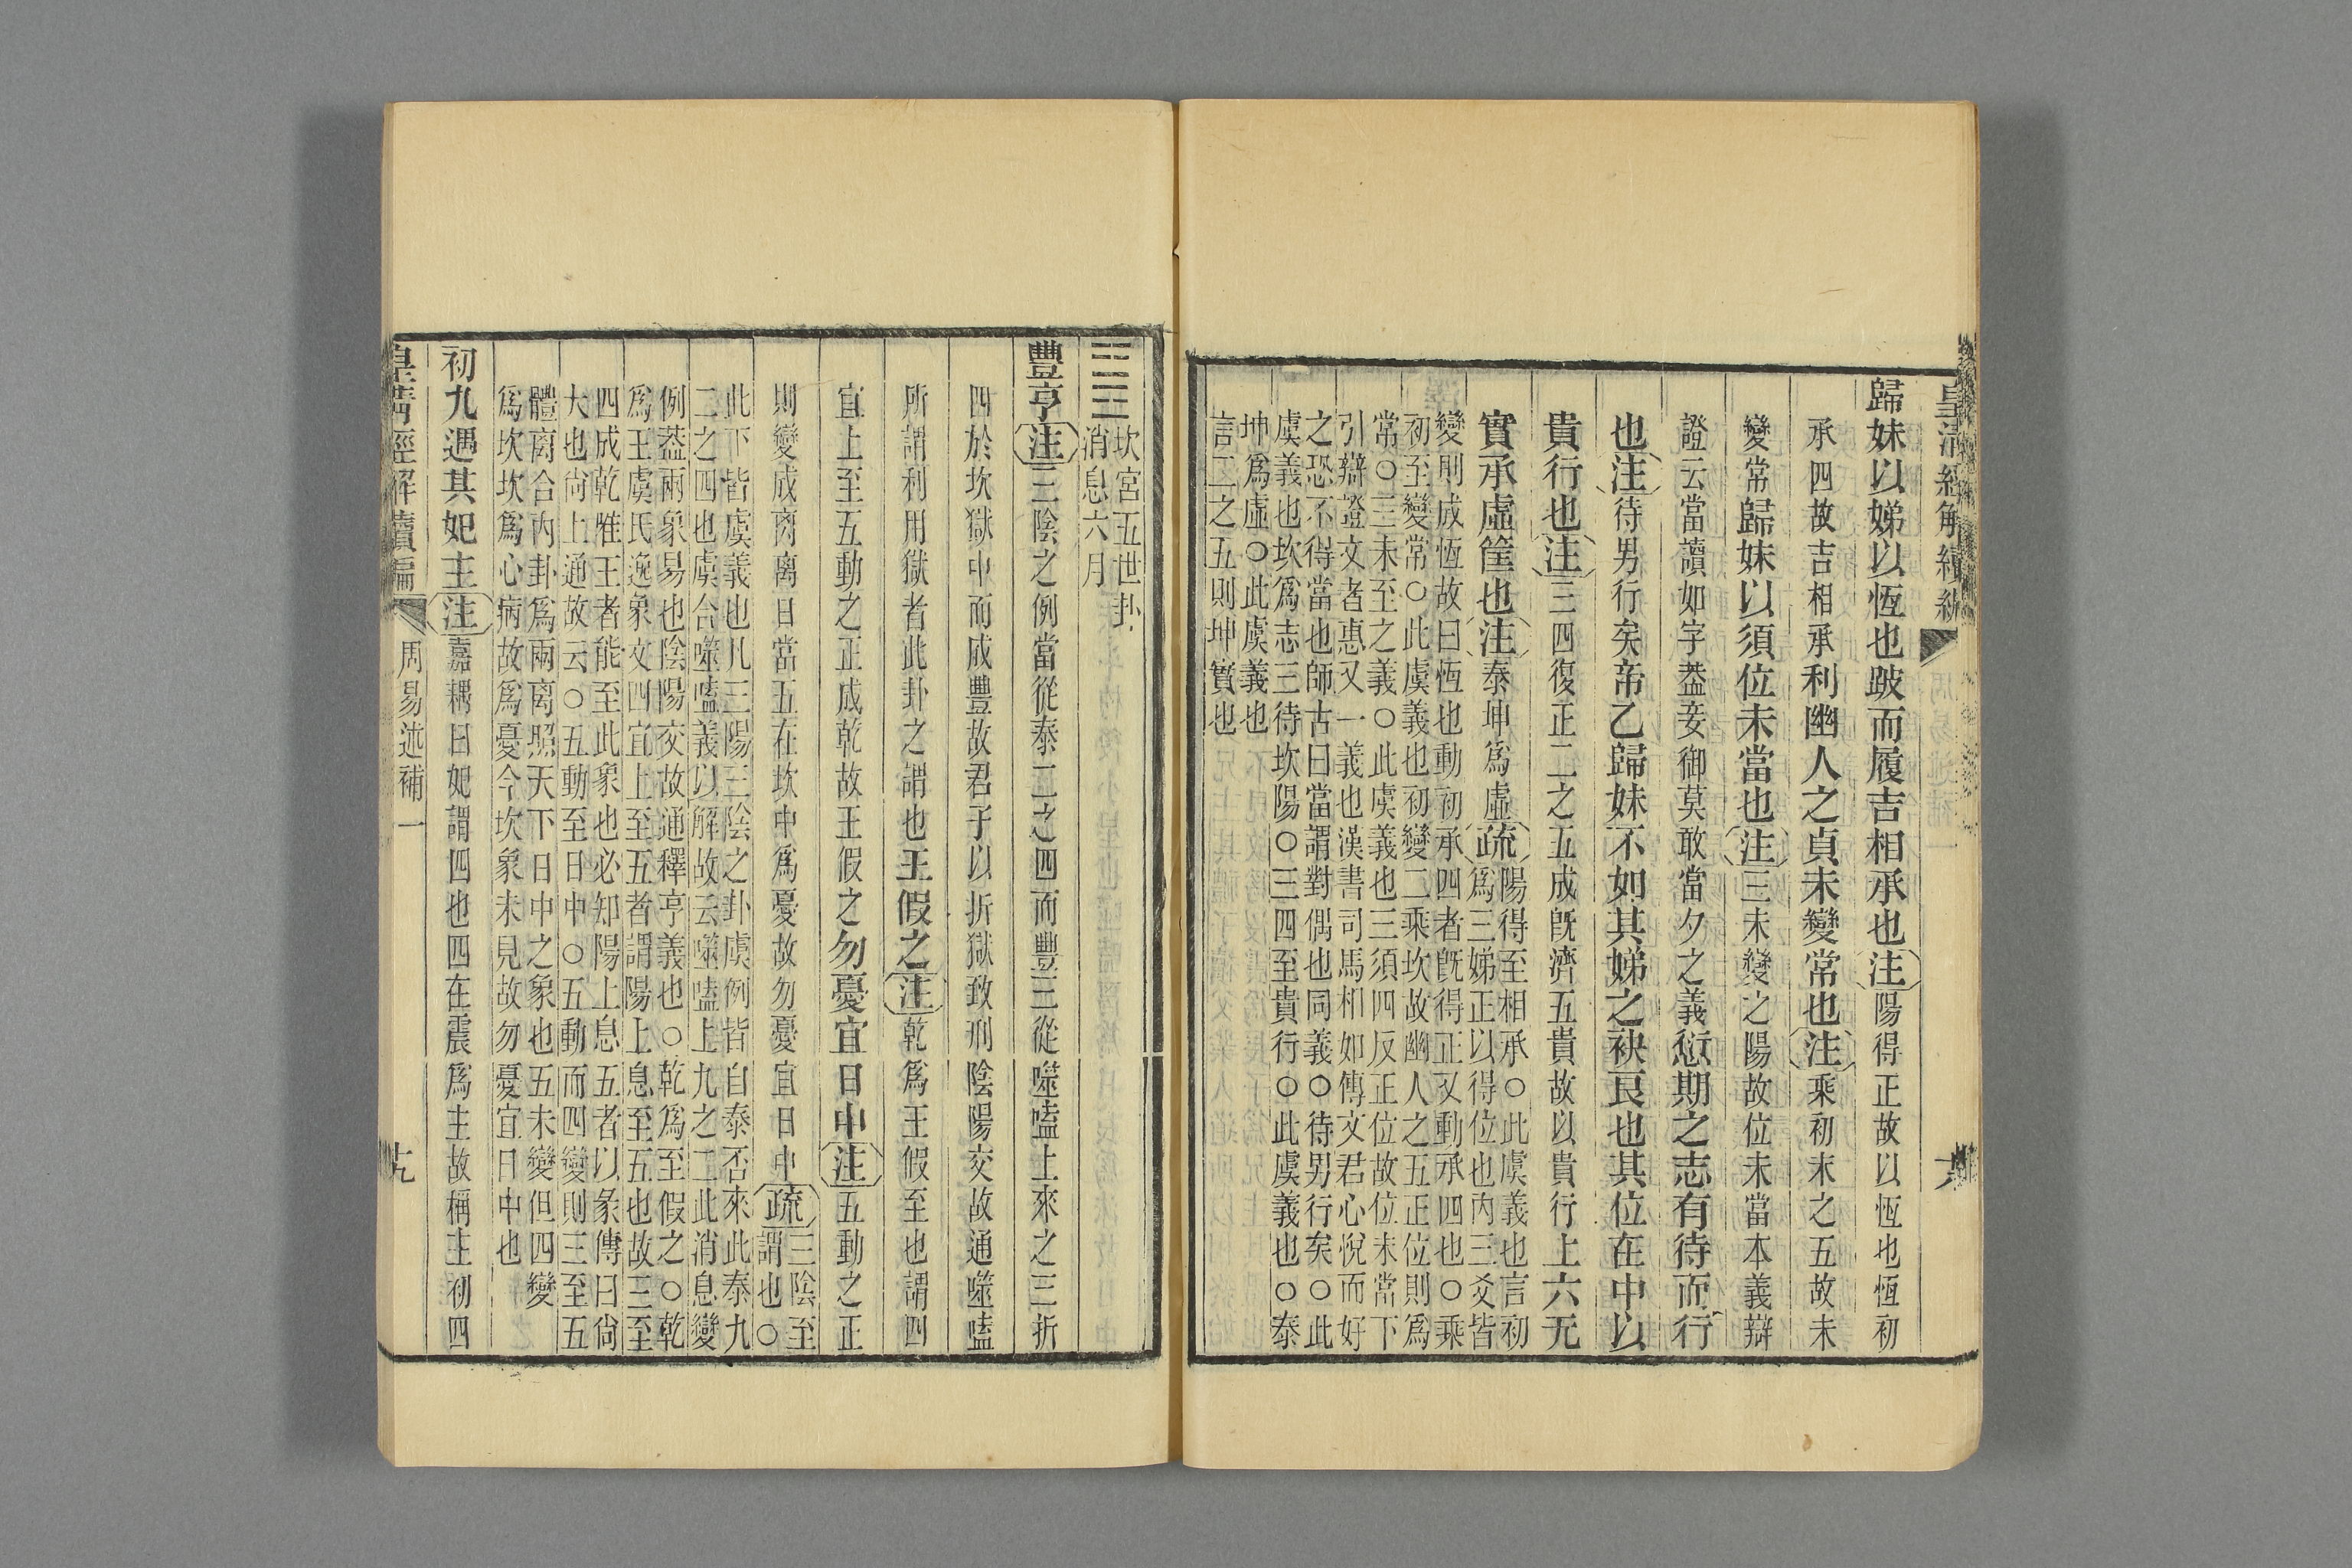 皇清經解續編
歸妹以娣以恆也跛而履吉相承也注陽得正故以恆也恆初
承四故吉相承利幽人之貞未變常也注乘初未之五故未
變常歸妹以須位未當也注三未變之陽故位未當本義辯
證云當讀如字葢妾御莫敢當夕之義愆期之志有待而行
也注待男行矣帝乙歸妹不如其娣之袂良也其位在中以
貴行也注三四復正二之五成旣濟五貴故以貴行上六无
實承虛筐也注泰坤爲虛疏陽得至相承○此虞義也言初
爲三娣正以得位也內三爻皆
變則成恆故曰恆也動初承四者旣得正又動承四也○乘
初至變常○此虞義也初變二乘坎故幽人之五正位則爲
常○三未至之義○此虞義也三須四反正位故位未當下
引辯證文者惠又一義也漢書司馬相如傳文君心悅而好
之恐不得當也師古曰當謂對偶也同義○待男行矣○此
虞義也坎爲志三待坎陽○三四至貴行○此虞義也○泰
坤爲虛○此虞義也
言二之五則坤實也
坎宮五世卦
消息六月
豐亨注三陰之例當從泰二之四而豐三從噬嗑上來之三折
四於坎獄中而成豐故君子以折獄致刑陰陽交故通噬嗑
所謂利用獄者此卦之謂也王假之注乾爲王假至也謂四
宜上至五動之正成乾故王假之勿憂宜日中注五動之正
則變成离離日當五在坎中爲憂故勿憂宜日中疏三陰至
謂也○
此下皆虞義也凡三陽三陰之卦虞例皆自泰否來此泰九
二之四也虞合噬嗑義以解故云噬嗑上九之二此消息變
例葢兩象易也陰陽交故通釋亨義也○乾爲至假之○乾
爲王虞氏逸象文四宜上至五者謂陽上息至五也故三至
四成乾惟王者能至此象也必知陽上息五者以彖傳曰尙
大也尙上通故云○五動至日中○五動而四變則三至五
體离合內卦爲兩离照天下日中之象也五未變但四變
爲坎坎爲心病故爲憂今坎象未見故勿憂宜日中也
初九遇其妃主注嘉耦曰妃謂四也四在震爲主故稱主初四
皇清經解續編
周易述補一
九